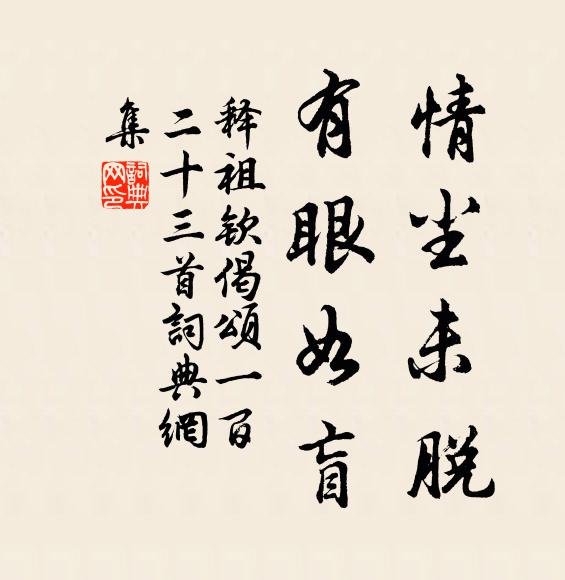 情尘未脱
有眼如盲
释祖钦偈颂一百
二十三首詞典網
集
詞典
网印